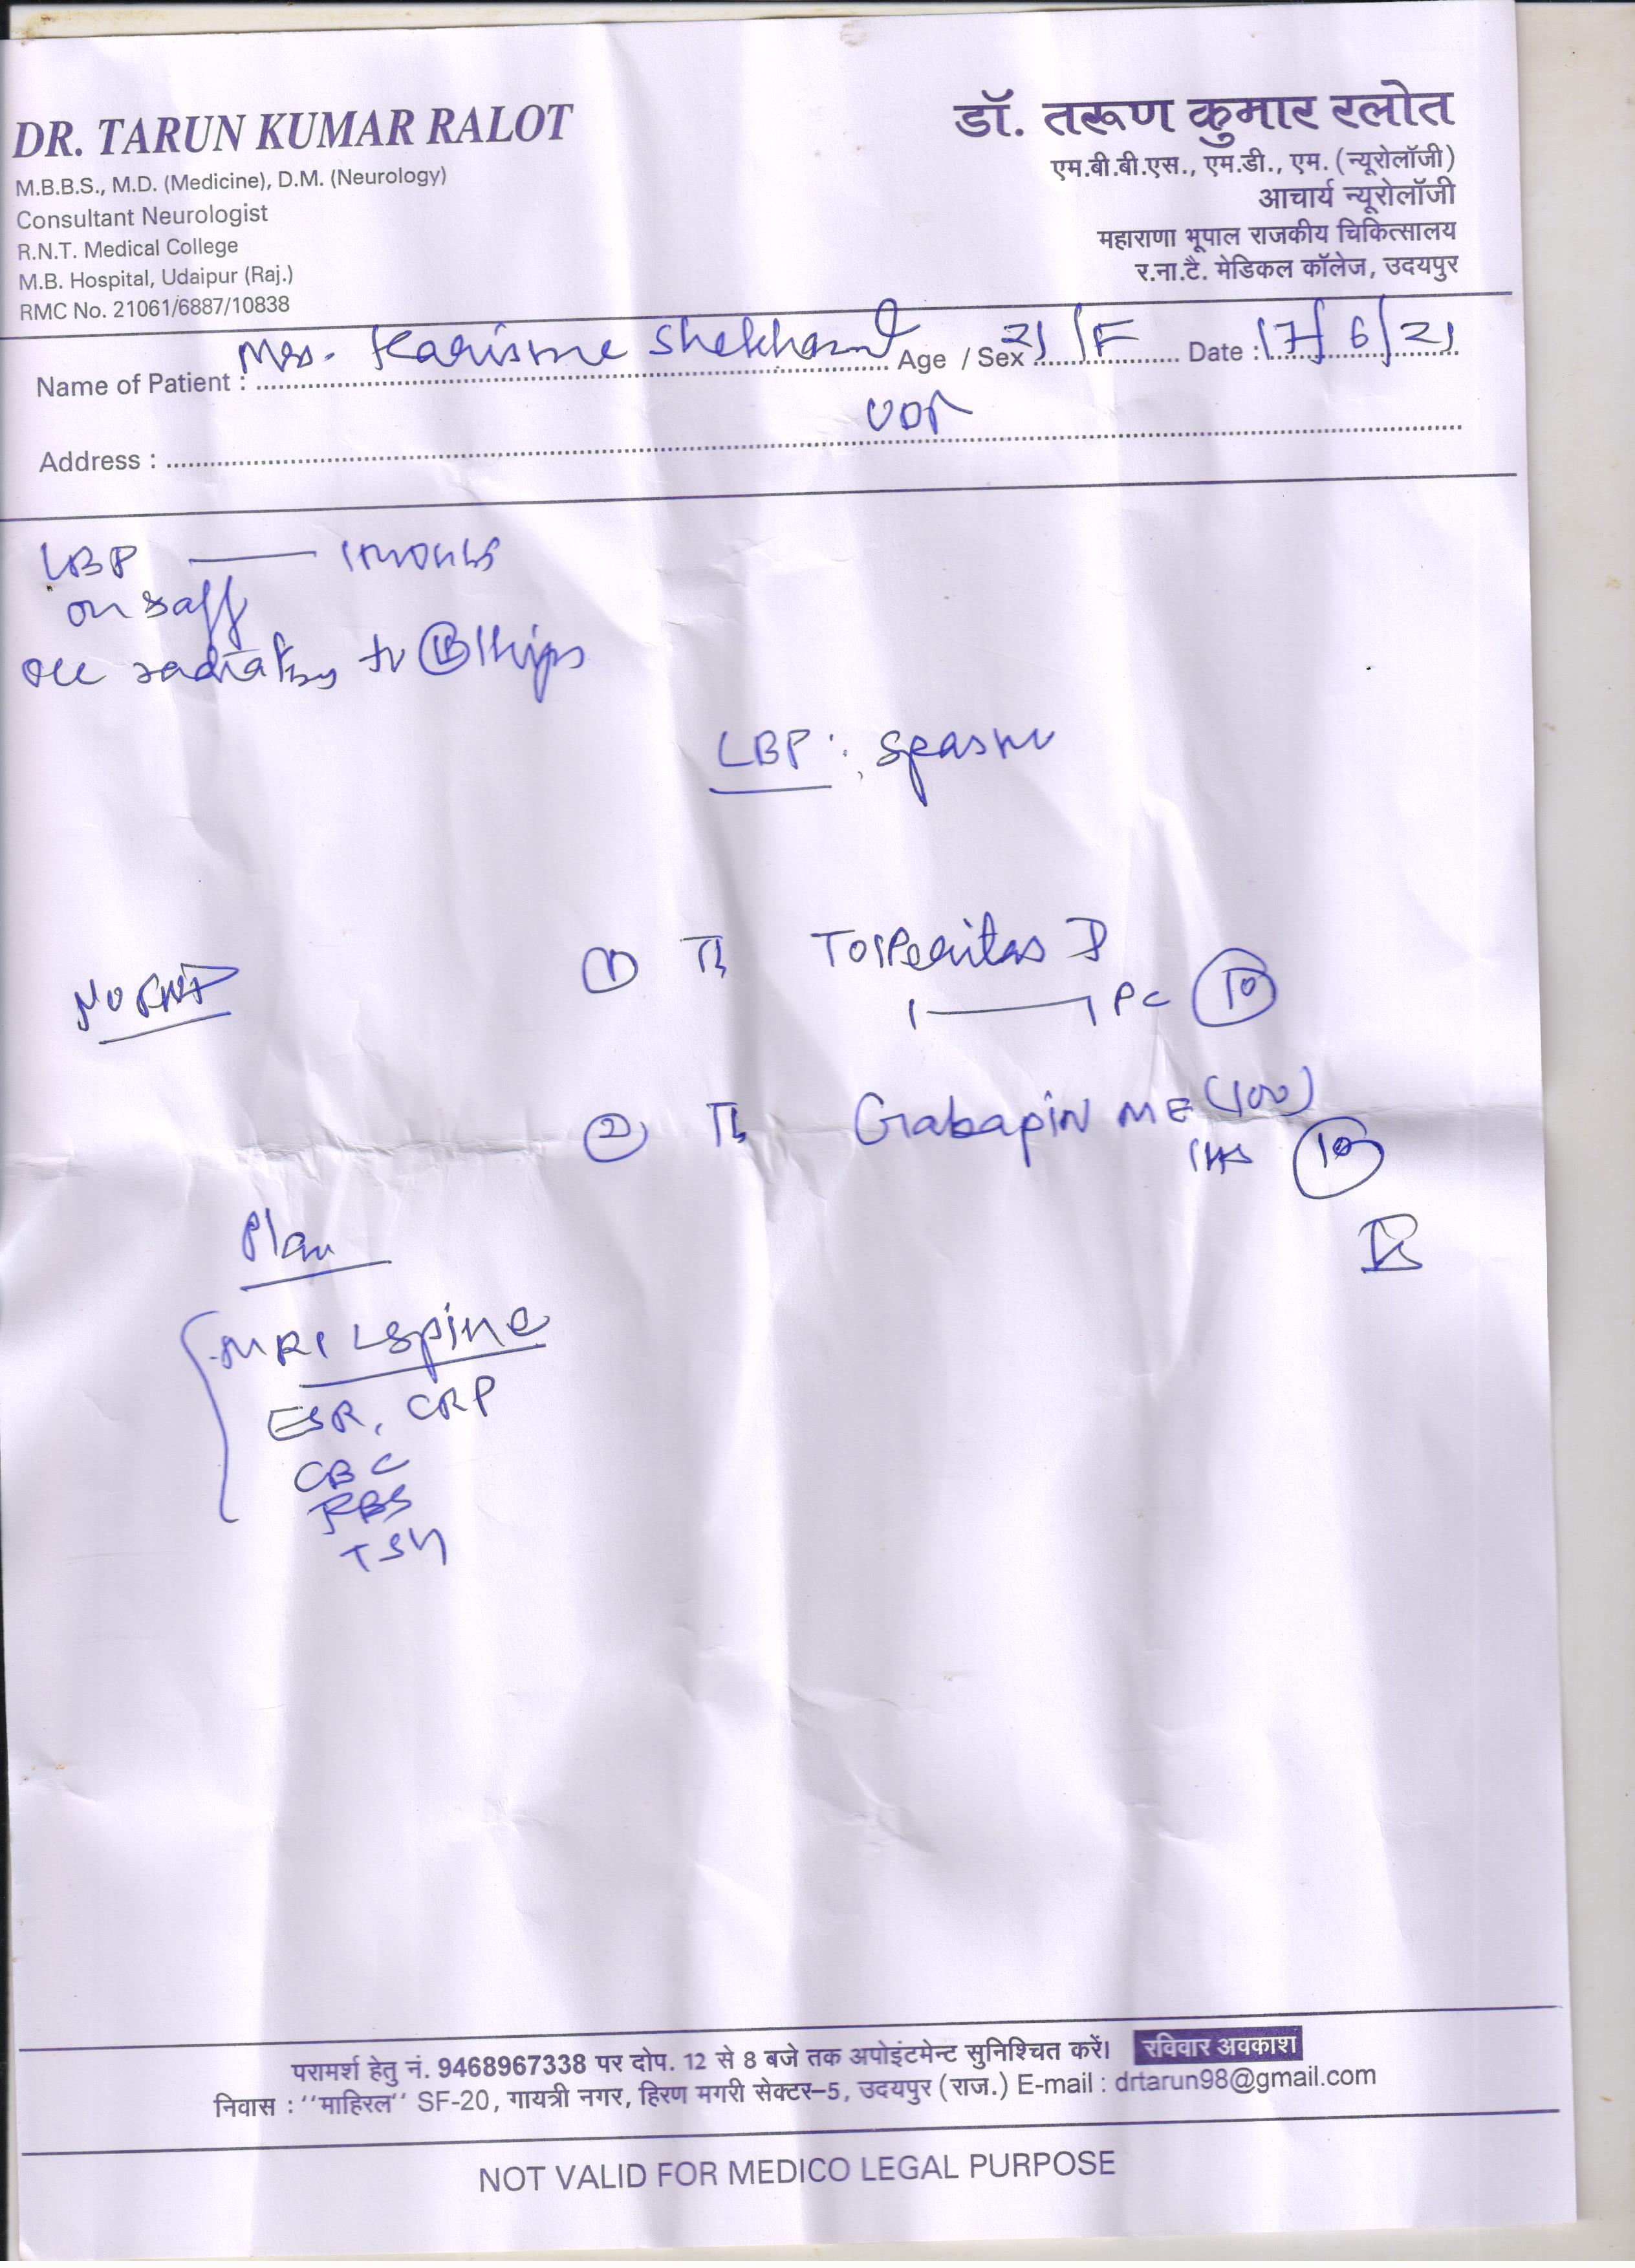 DR. TARUN KUMAR RALOT
M.B.B.S., M.D. (Medicine), D.M. (Neurology)
Consultant Neurologist
R.N.T. Medical College
M.B. Hospital, Udaipur (Raj.)
RMC No. 21061/6887/10838
डॉ. तरूण कुमार रलोत
एम.बी.बी.एस., एम.डी., एम. (न्यूरोलॉजी)
आचार्य न्यूरोलॉजी
महाराणा भूपाल राजकीय चिकित्सालय
र.ना.टै. मेडिकल कॉलेज, उदयपुर
Name of Patient : Mrs. Age / Sex 21/F Date : 17/6/21
Address : UDR
LBP
radiating to
LBP : spasm
①
1 — 1 PC 10
② Gabapin ME (100)
1HS 10
Plan
MRI LSpine
ESR, CRP
CBC
RBS
TSH
परामर्श हेतु नं. 9468967338 पर दोप. 12 से 8 बजे तक अपोइंटमेन्ट सुनिश्चित करें। रविवार अवकाश
निवास : "माहिरल" SF-20, गायत्री नगर, हिरण मगरी सेक्टर-5, उदयपुर (राज.) E-mail : drtarun98@gmail.com
NOT VALID FOR MEDICO LEGAL PURPOSE